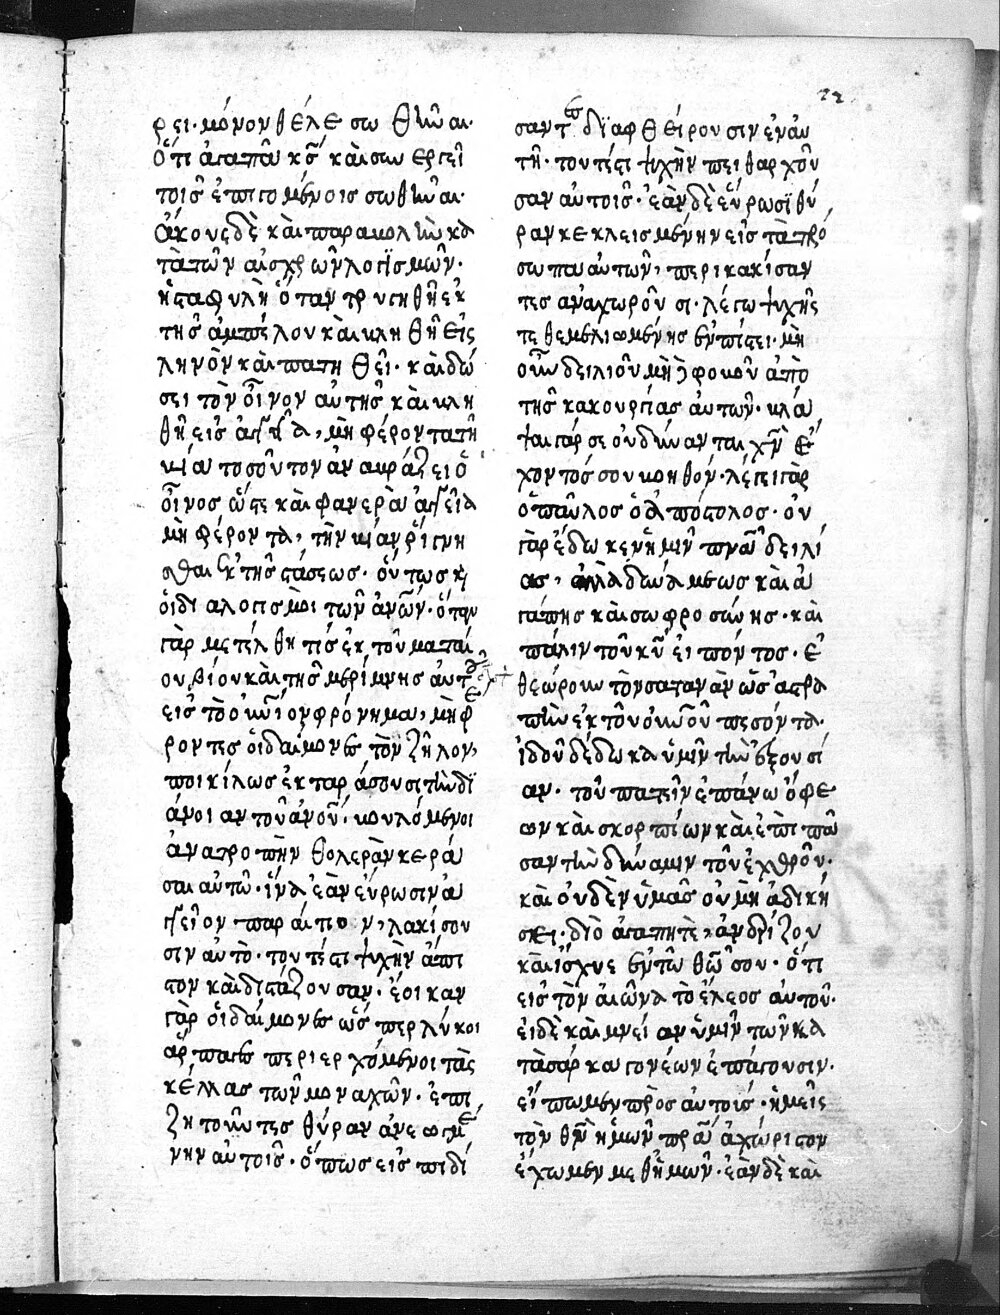 22
ρει· μόνον θέλε σωθῆναι·
ὅτι ἀγαπᾶ κ̅ς̅ καὶ συνεργεῖ
τοῖς ἐπειγομένοις σωθῆναι·
ἄκουε δὲ καὶ παραβολὴν κα
τὰ τῶν αἰσχρῶν λογισμῶν·
ἡ σταφυλὴ ὅταν τρυγηθῆ ἐκ
τῆς ἀμπέλου καὶ βληθῆ εἰς
ληνὸν καὶ πατηθεῖ· καὶ δώ
σει τὸν οἶνον αὐτῆς καὶ βλη
θῆ εἰς ἀγγεῖα, μὴ φέροντα τὴν
βίαν τοσοῦτον ἀναβράζει ὁ
οἶνος ὥστε καὶ φανερὰ ἀγγεῖα
μὴ φέροντα, τὴν βίαν ῥίγνη
σθαι ἐκ τῆς στάσεως· οὕτως κ(αὶ)
οἱ διαλογισμοὶ τῶν ἀν̅ω̅ν· ὅταν
γὰρ μετέλθη τίς ἐκ τοῦ ματαί
ου βίου καὶ τῆς μερίμνης αὐτοῦ
εἰς τὸ οὐ̅νιον φρόνημα, μὴ φέ
ροντες οἱ δαίμονες τὸν ζῆλον,
ποικίλως ἐκταράσουσι τὴν δϊ
άνοιαν τοῦ ἀν̅ου̅· βουλόμενοι
ἀνατροπὴν θολερὰν κερά
σαι αὐτῶ· ἵνα ἐὰν εὕρωσιν ἀ
γγεῖον παράτιτον, λακίσου
σιν αὐτό· τουτέστι ψυχὴν ἄπι
στον καὶ διστάζουσαν· ἐοίκαν
γὰρ οἱ δαίμονες ὥσπερ λύκοι
ἅρπαγες περιερχόμενοι τὰς
κέλλας τῶν μοναχῶν· ἐπι
ζητοῦντες θύραν ἀνεωγμέ
νην αὐτοῖς· ὅπως εἰσπιδί
σαντες διαφθείρουσιν ἐν αὐ
τῆ· τουτέστι ψυχὴν πειθαρχοῦ
σαν αὐτοῖς· ἐὰν δὲ εὕρωσϊ θύ
ραν κεκλεισμένην εἰς τὰ πρό
σωπα αὐτῶν, περικακίσαν
τες ἀναχωροῦσι· λέγω ψυχῆς
τεθεμελιωμένης ἐν πίστει· μὴ
οὖν δειλιοῦ μὴ δὲ φοβοῦ ἀπὸ
τῆς κακουργίας αὐτῶν· βλά
ψαι γάρ σε οὐ δύνανται χ̅ν̅ ἔ
χοντός σου βοηθόν· λέγει γὰρ
ὁ παῦλος ὁ ἀπόστολος· οὐ
γὰρ ἔδωκεν ἡμῖν πνεῦμα δειλί
ας, ἀλλὰ δυνάμεως καὶ ἀ
γάπης καὶ σωφροσύνης· καὶ
πάλιν τοῦ κ̅υ̅ εἰπόντος· ἐ
θεώρουν τὸν σατανὰν ὡς ἀστρα
πὴν ἐκ τοῦ οὐ̅νου̅ πεσόντα·
ἰδοὺ δέδωκα ὑμῖν τὴν ἐξουσί
αν· τοῦ πατεῖν ἐπάνω ὄφε
ων καὶ σκορπίων καὶ ἐπὶ πᾶ
σαν τὴν δύναμιν τοῦ ἐχθροῦ·
καὶ οὐδὲν ὑμᾶς οὐ μὴ ἀδική
σει· διὸ ἀγαπητὲ, ἀνδρίζου
καὶ ἴσχυε ἐν τῶ θ̅ῶ̅ σου· ὅτι
εἰς τὸν αἰῶνα τὸ ἔλεος αὐτοῦ·
εἰ δὲ καὶ μνείαν ὑμῖν τῶν κα
τὰ σάρκα γονέων ἐπάγουσιν·
εἴπωμεν πρὸς αὐτοῖς· ἡμεῖς
τὸν θ̅ν̅ ἡμῶν π̅ρ̅α ἀχώριστον
ἔχωμεν μεθ ἡμῶν· ἐὰν δὲ καὶ